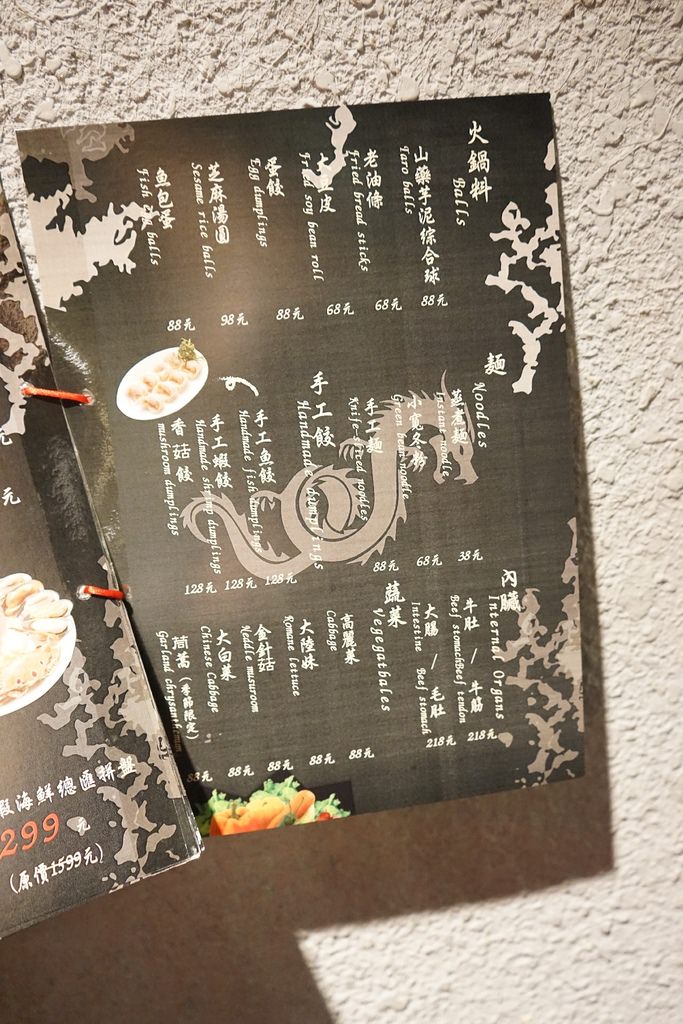 火鍋料
Balls
山藥芋泥综合球
Taro balls
88元
老油條
Fried bread sticks
68元
皮
Fried soy bean roll
68元
蛋餃
Egg dumplings
88元
芝麻湯圓
Sesame rice balls
98元
魚包蛋
Fish balls
88元
麵
Noodles
蒸煮麵
Instant noodle
38元
小寬冬粉
Green bean noodle
68元
手工麵
Knife-sliced noodles
88元
手工餃
Handmade dumplings
手工魚餃
Handmade fish dumplings
128元
手工蝦餃
Handmade shrimp dumplings
128元
香菇餃
mushroom dumplings
128元
內臟
Internal Organs
牛肚 / 牛筋
Beef stomachBeef tendon
218元
大腸 / 毛肚
Intestine Beef stomach
218元
蔬菜
Vegegatbales
高麗菜
Cabbage
88元
大陸妹
Romane lettuce
88元
金針菇
Neddle musuroom
88元
大白菜
Chinese Cabbage
88元
茼蒿(季節限定)
Garlane chrysanthemum
88元
元
元
海鮮總匯拼盤
299元
(原價1599元)